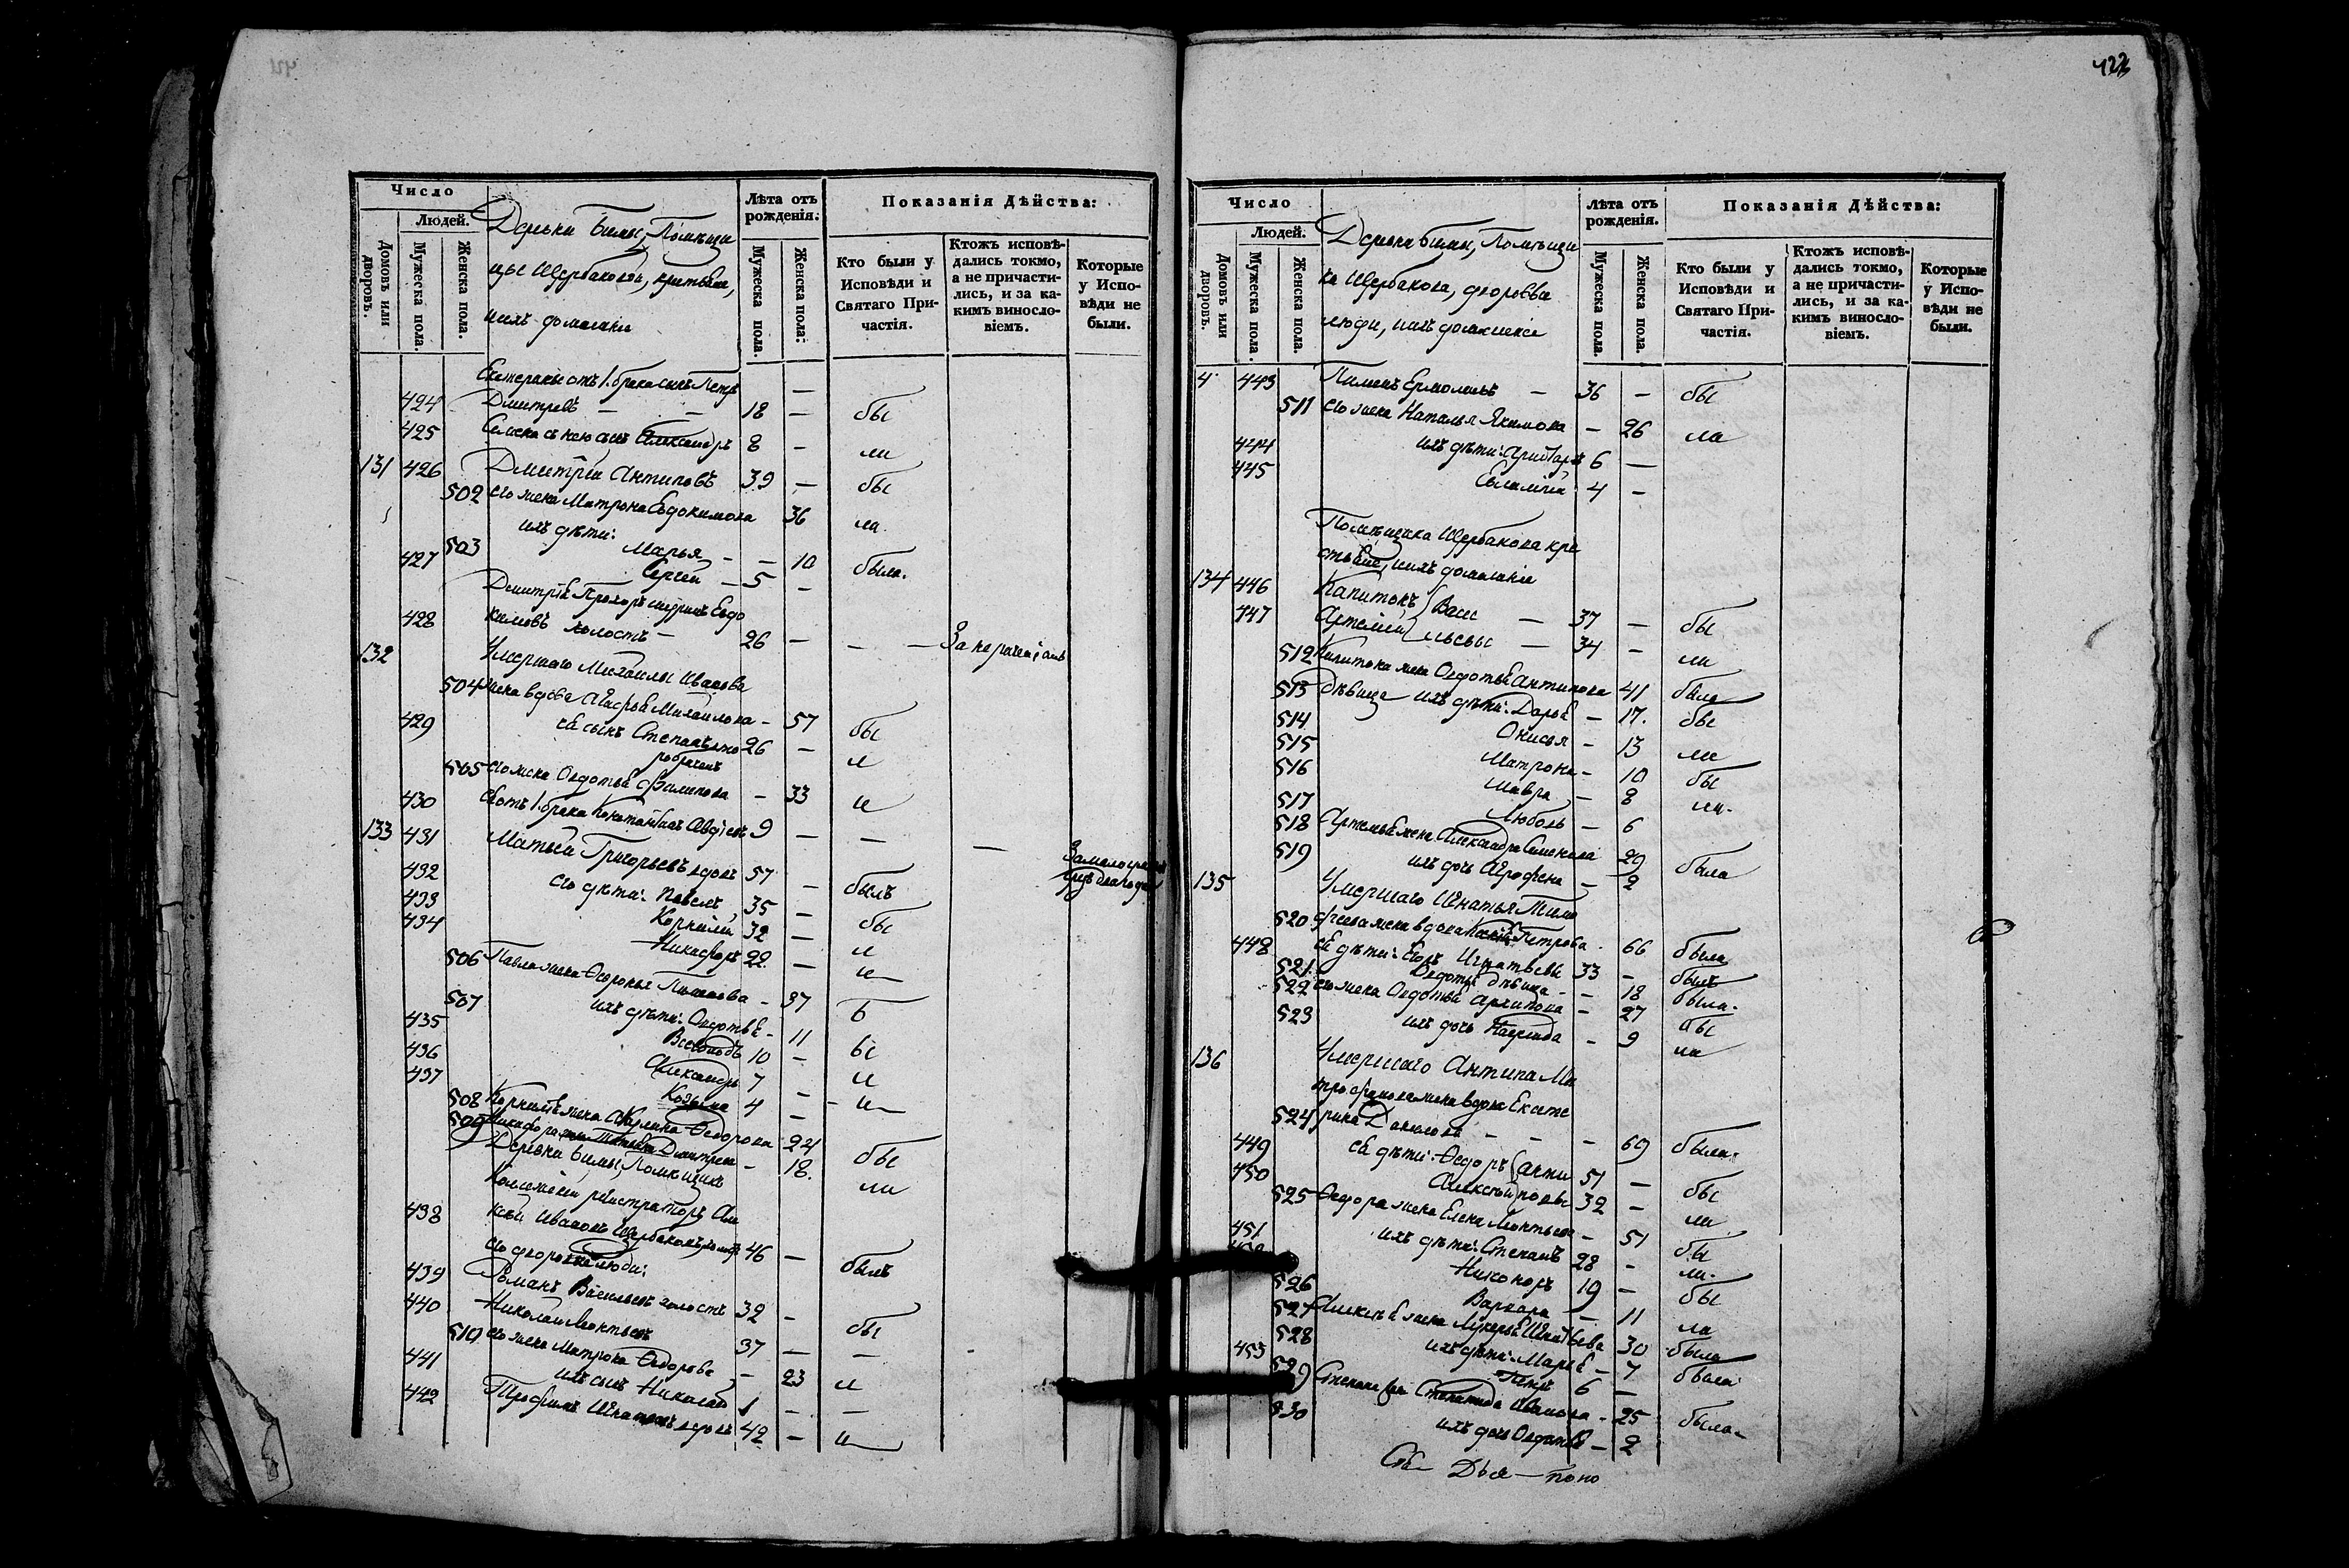 422
Число
Людей.
Домовъ или дворовъ.
Мужеска пола.
Женска пола.
Деревни Бимы, Помѣщи
цы Щербаковой, крестьяне,
и ихъ домашніе
Лѣта отъ рожденія.
Мужеска пола.
Женска пола.
Показанія Дѣйства:
Кто были у Исповѣди и Святаго Причастія.
Ктожъ исповѣдались токмо, а не причастились, и за какимъ винословіемъ.
Которые у Исповѣди не были.
отъ 1. брака сынъ Петръ
424 Дмитріевъ — — 18 — бы
425 сынъ Александръ 8 — ли
131 426 Дмитрій Антиповъ 39 — бы
502 его жена Матрона Евдокимова 36 ли
ихъ дѣти:
503 Марья — — 10 была.
427 Сергей — 5 —
Дмитрія шуринъ Евдо
428 кимовъ холостъ — 26 — — — За нераченіемъ
132 Умершаго Михаилы Иванова
504 жена вдова Михаилова — 57 бы
429 ея сынъ Степанъ 26 — и
505 его жена Федотья Филипова — 33 и
430 отъ 1. брака Константинъ 9 — — —
133 431 Матвей Григорьевъ вдовъ 57 — былъ
432 его дѣти: Павелъ 35 — бы
433 Корнилій 32 — и
434 Никифоръ 22 — и
506 Павла жена Ѳедосья — 37 б
507 ихъ дѣти: Федотья — 11 ы
435 10 — и
436 Александръ 7 —
437 Козьма 4 — и
508 Корнилія жена Акулина Ѳедорова 24 бы
509 Никифора Дмитріева — 18. ли
Деревни Бимы, Помѣщикъ
Колежскій регистраторъ Але
438 ксѣй Ивановъ Щербаковъ 46 — былъ
его дворовые люди:
439 Романъ Васильевъ холостъ 32 — бы
440 Николай Леонтьевъ 37 — —
510 его жена Матрона Ѳедорова — 23 и
441 ихъ сынъ Николай 1 — —
442 Трофимъ Игнатьевъ вдовъ 42 — и
Число
Людей.
Домовъ или дворовъ.
Мужеска пола.
Женска пола.
Деревни Бимы, Помѣщи
ка Щербакова, дворовые
люди, и ихъ домашніе
Лѣта отъ рожденія.
Мужеска пола.
Женска пола.
Показанія Дѣйства:
Кто были у Исповѣди и Святаго Причастія.
Ктожъ исповѣдались токмо, а не причастились, и за какимъ винословіемъ.
Которые у Исповѣди не были.
4 443 Пименъ Ермолаевъ — 36 — бы
511 его жена Наталья Якимова — 26 ла
444 ихъ дѣти: 6 —
445 Евлампій 4 —
Помѣщика Щербакова кре
стьяне, и ихъ домашніе
134 446 Капитонъ Васи — 37 — бы
447 Артемій льевы — 34 — ли
512 Капитона жена Федотья Антипова 41 была
513 дѣвица ихъ дѣти: Дарья — 17. бы
514 Онисья — 13 ли
515 Матрона — 10 бы
516 Мавра — 8 ли.
517 Любовь — 6
518 Артемья жена Александра Семенова 29 была
519 ихъ дочь — 2
135 Умершаго Игнатья Тимо
520 феева жена вдова Петрова — 66 была
448 ея дѣти: Игнатьевы 33 — былъ
521 Федотья дѣвица — — 18 была.
522 его жена Федотья Архипова — 27 бы
523 ихъ дочь — 9 ли
136 Умершаго Антипа Ми
трофанова жена вдова Екате
524 рина Данилова — — — 69 была.
449 ея дѣти: Ѳедоръ Анти 51 — бы
450 Алексѣй повы 32 — ли
525 Ѳедора жена Елена Леонтьева — 51 бы
451 ихъ дѣти: Степанъ 28 — ли.
452 Никоноръ 19 — бы
526 Варвара — 11 ла
527 Алексѣя жена Лукерья Игнатьева 30 была
528 ихъ дѣти: Марья — 7 была
453 Петръ 6 —
529 Степана жена Степанида Иванова — 25 была.
530 ихъ дочь Федотья — 2